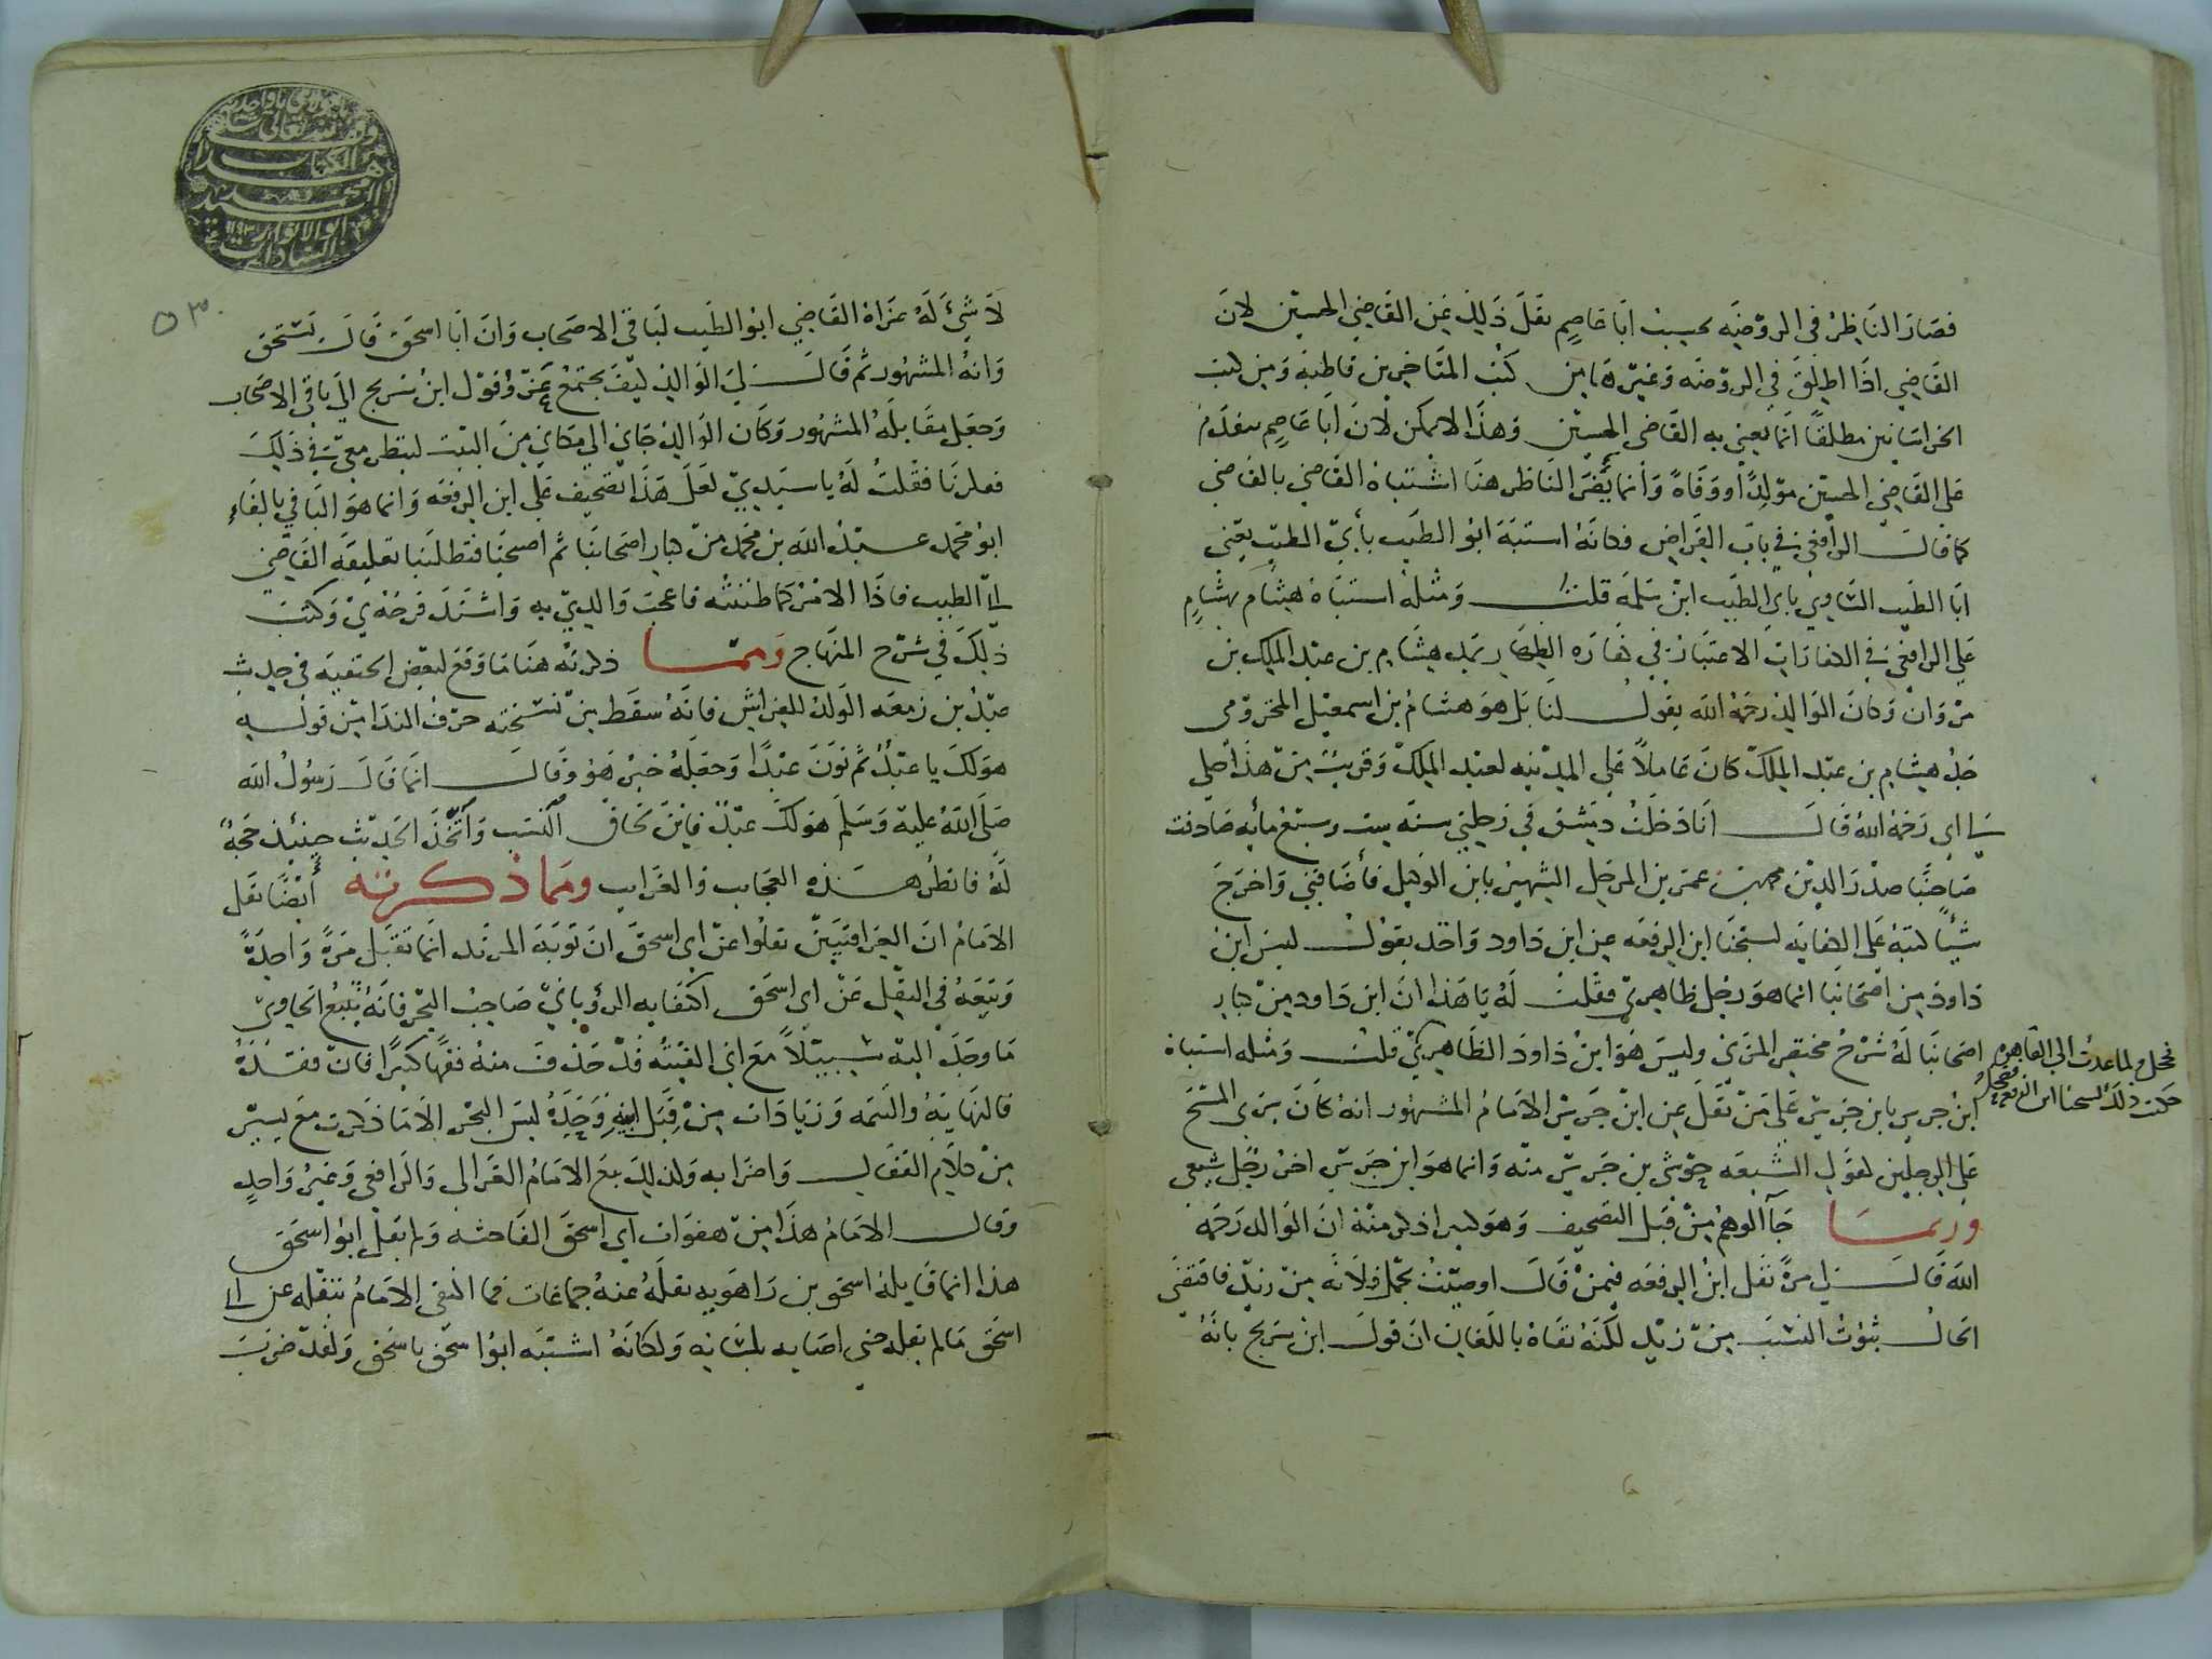 فصار الناظر في الروضة يحسب ابا عاصم نقل ذلك عن القاضي الحسين لان
القاضي اذا اطلق في الروضه وغيرها من كتب المتاخرين قاطبة ومن كتب
الخراسانيين مطلقا انما يعني به القاضي الحسين وهذا لا يمكن لان ابا عاصم متقدم
على القاضي الحسين مولدا ووفاة وانما الناظر هنا اشتباه القاضي بالقاضي
كما قال الرافعي في باب القراض وكانه اشتبه ابو الطيب بأبي الطيب يعني
ابا الطيب الساوي بابي الطيب ابن سلمة قلت ومثله اشتباه هشام بهشام
على الرافعي في الكفارات الاعتبار في كفاره الظهار بمد هشام بن عبد الملك بن
مروان وكان الوالد رحمه الله يقول لنا بل هو هشام بن اسمعيل المخزومي
جد هشام بن عبد الملك كان عاملا على المدينه لعبد الملك وقريب من هذا حكى
لي ابي رحمه الله قال انا دخلت دمشق في رحلتي سنة ست وسبع مأيه صادفت
صاحبنا صدر الدين محمد بن عمر بن المرحل الشهير بابن الوكيل فأضافني واخرج
شيئا كتبه على الكفايه لشيخنا ابن الرفعه عن ابن داود واخذ يقول ليس ابن
داود من اصحابنا انما هو رجل ظاهري فقلت له يا هذا ان ابن داود من كبار
اصحابنا له شرح مختصر المزني وليس هو ابن داود الظاهري قلت ومثله اشتباه
فخجل ولما عدت الى القاهره
حكيت ذلك لشيخنا ابن الرفعه
ابن جرير بابن جرير على من نقل عن ابن جرير الامام المشهور انه كان يرى المسح
على الرجلين لقول الشيعه جوزي بن جرير منه وانما هو ابن جرير اخر رجل شيعي
وربما جآ الوهم من قبل التصحيف وهو كبير اذكر منه ان الوالد رحمه
الله قال لي مرة نقل ابن الرفعه فيمن قال اوصيت بحمل فلانه من زيد فاقتضى
الحال ثبوت النسب من زيد لكنه نفاه باللعان ان قول ابن سريج بانه
لا شيء له عزاه القاضي ابو الطيب لباقي الاصحاب وان ابا اسحق قال يستحق
وانه المشهور ثم قال لي الوالد كيف يجتمع عزو قول ابن سريج الى باقي الاصحاب
وجعل مقابله المشهور وكان الوالد جاني الى مكاني من البيت لينظر معي في ذلك
ففكرنا فقلت له يا سيدي لعل هذا تصحيف على ابن الرفعه وانما هو البافي بالفاء
ابو محمد عبد الله بن محمد من كبار اصحابنا ثم اصبحنا فتطلبنا تعليقه القاضي
ابي الطيب فاذا الامر كما ظننته فاعجب والدي به واشتد فرحه بي وكتبت
ذلك في شرح المنهاج ومما ذكرته هنا ما وقع لبعض الحنفيه في حديث
عبد بن زمعه الولد للفراش فانه سقط من نسخته حرف الندا من قوله
هو لك يا عبد ثم نون عبدا وجعله خبر هو وقال انما قال رسول الله
صلى الله عليه وسلم هو لك عبد فاين لحاق النسب واتخذ الحديث حينئذ حجة
له فانظر هذه العجايب والغرايب ومما ذكرته أيضا نقل
الامام ان العراقيين نقلوا عن ابي اسحق ان توبة المرتد انما تقبل مرة واحدة
وتبعه في النقل عن ابي اسحق اكتفا به الرؤياني صاحب البحر فانه يتبع الحاوي
ما وجد اليه سبيلا مع اني الفيته قد حذف منه فقها كبيرا فان فقده
فالنهاية والتتمه وزيادات من قبل ابيه وجده ليس البحر الا ما ذكرت مع يسير
من كلام القفال واضرابه ولذلك تبع الامام الغزالي والرافعي وغير واحد
وقال الامام هذا من هفوات ابي اسحق الفاحشه ولم يقل ابو اسحق
هذا انما قايله اسحق بن راهويه نقله عنه جماعات فما اكتفى الامام بنقله عن ابي
اسحق ما لم يقله حتى اصابه بلسانه ولكانه اشتبه ابو اسحق باسحق ولقد ضربت
وقف لله تعالى
هذا الكتاب
محمد
ابو الانوار
السادات
٥٣